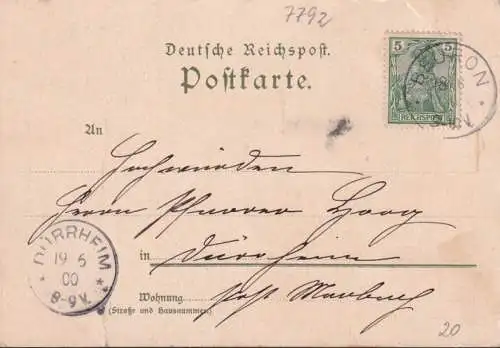 7792
Deutsche Reichspost.
Postkarte.
5 5
REICHSPOST
BEURON
An
Hochwürden
Herrn Pfarrer Haag
in Dürrheim
Wohnung
(Straße und Hausnummer)
post Marbach
DÜRRHEIM
19 6
00
8-9V.
20